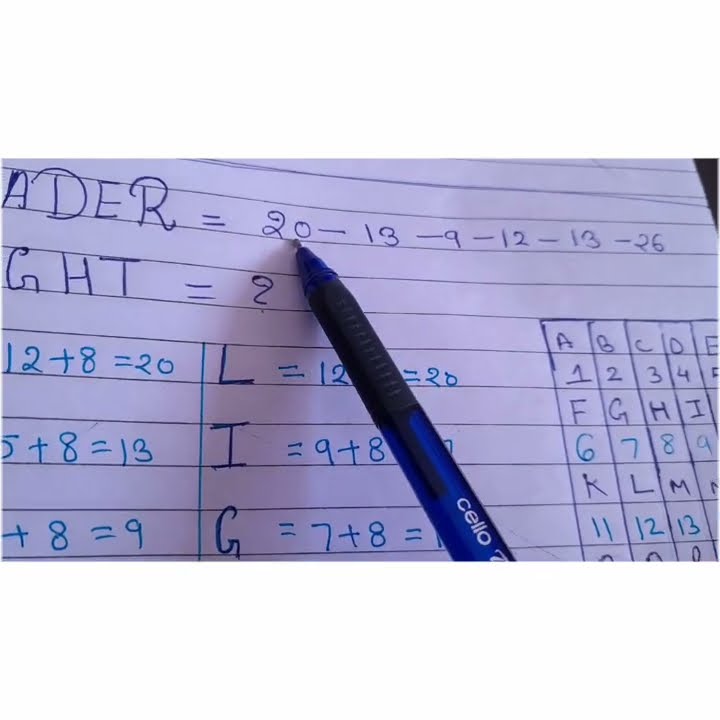 ADER = 20 - 13 - 9 - 12 - 13 - 26
GHT = ?
12 + 8 = 20
L = 12 = 20
5 + 8 = 13
I = 9 + 8
+ 8 = 9
G = 7 + 8 =
A B C D E
1 2 3 4 5
F G H I
6 7 8 9
K L M
11 12 13
cello